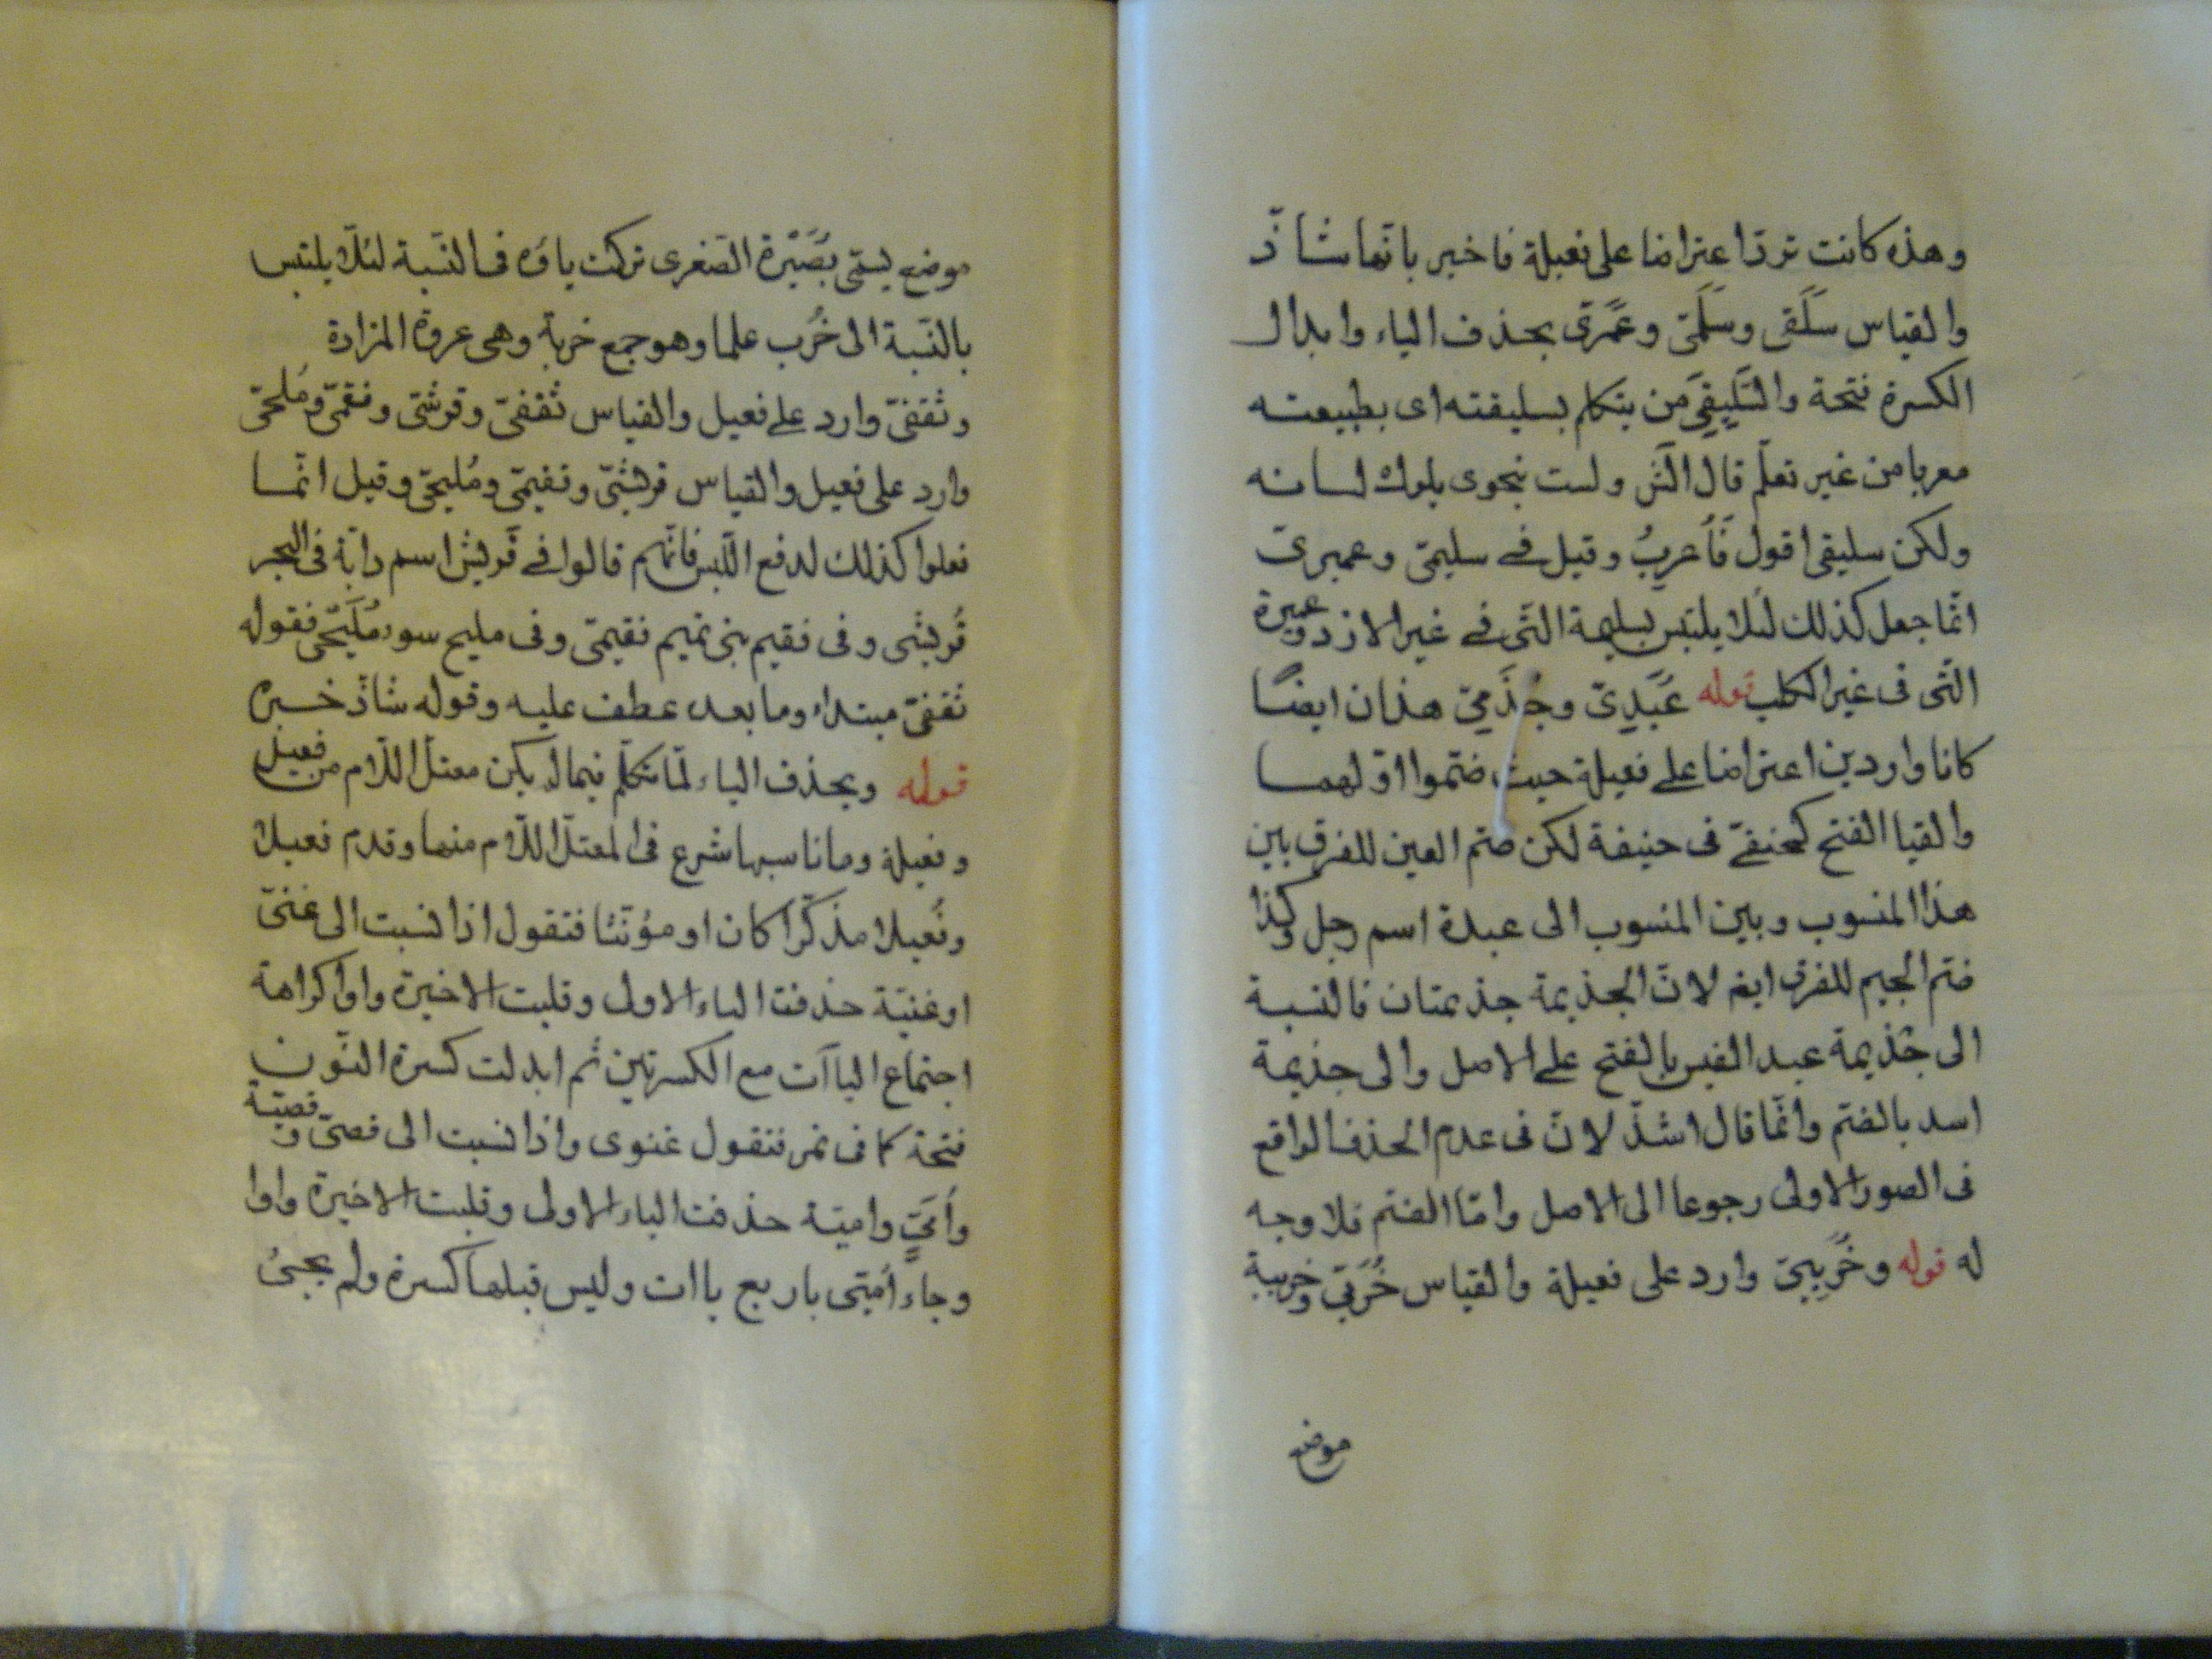 وهذه كانت ترد اعتراضا على فعيلة فاخبر بانّها شاذّ
والقياس سَلَقى وسَلَمىّ وعَمَرىّ بحذف الياء وابدال
الكسرة فتحة والسَّلِيقِى مَن يتكلم بسليقته اى بطبيعته
معربا من غير تعلّم قال الشّ ولست بنحوى يلوك لسانه
ولكن سليقى اقول فَأُعرِبُ وقيل فى سليمىّ وعميرىّ
انّما جعل كذلك لئلا يلتبس بسليمة التى فى غير الازد وعميرة
التّى فى غير الكلب قوله عُبَدِىّ وجُذَمِىّ هذان ايضًا
كانا واردين اعتراضا على فعيلة حيث ضمّوا اوّلهما
والقيا الفتح كحنفىّ فى حنيفة لكن ضم العين للفرق بين
هذا المنسوب وبين المنسوب الى عبدة اسم رجل وكذا
ضم الجيم للفرق ايض لانّ الجذيمة جذيمتان فالنسبة
الى جَذيمة عبد القيس بالفتح على الاصل والى جذيمة
اسد بالضّم وانّما قال اشذّ لانّ فى عدم الحذف الواقع
فى الصور الاولى رجوعا الى الاصل وامّا الضّم فلا وجه
له قوله وخُرَيبىّ وارد على فعيلة والقياس خُرَبىّ وخريبة
موضع
موضع يسمّى بُصَيْرة الصّغرى تركت ياؤه فى النّسبة لئلّا يلتبس
بالنّسبة الى خُرَب علما وهو جمع خربة وهى عروة المزادة
وثقفىّ وارد على فعيل والقياس ثقفىّ وقرشىّ وفقمىّ ومُلحىّ
وارد على فعيل والقياس قريشىّ وفقيمىّ ومُليحىّ وقيل انّما
فعلوا كذلك لدفع اللّبس فانّهم قالوا فى قُريش اسم دابّة فى البحر
قُريشى وفى فقيم بنى تميم فقيمىّ وفى مليح سود مُلَيْحى فقوله
ثقفىّ مبتداء وما بعده عطف عليه وقوله شاذّ خبره
قوله وبحذف الياء لمّا تكلّم فيما لم يكن معتلّ اللّام من فعيل
وفعيلة وما ناسبها شرع فى المعتلّ اللّام منهما وقدم فعيلا
وفُعيلا مذكّرا كان او مؤنّثا فتقول اذا نسبت الى غنىّ
او غنيّة حذفت الياء الاولى وقلبت الاخيرة واوا كراهة
اجتماع الياآت مع الكسرتين ثم ابدلت كسرة النّون
فتحة كما فى نمر فتقول غنوى واذا نسبت الى قصىّ وقصيّة
وأُمَىّ واميّة حذفت الياء الاولى وقلبت الاخيرة واوا
وجاء أُميّى باربع ياات وليس قبلها كسرة ولم يجئ